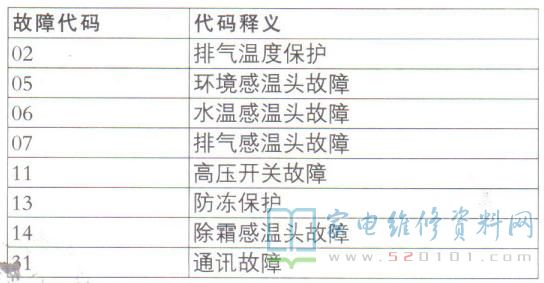 故障代码 代码释义
02 排气温度保护
05 环境感温头故障
06 水温感温头故障
07 排气感温头故障
11 高压开关故障
13 防冻保护
14 除霜感温头故障
31 通讯故障
家电维修资料网
www.520101.com